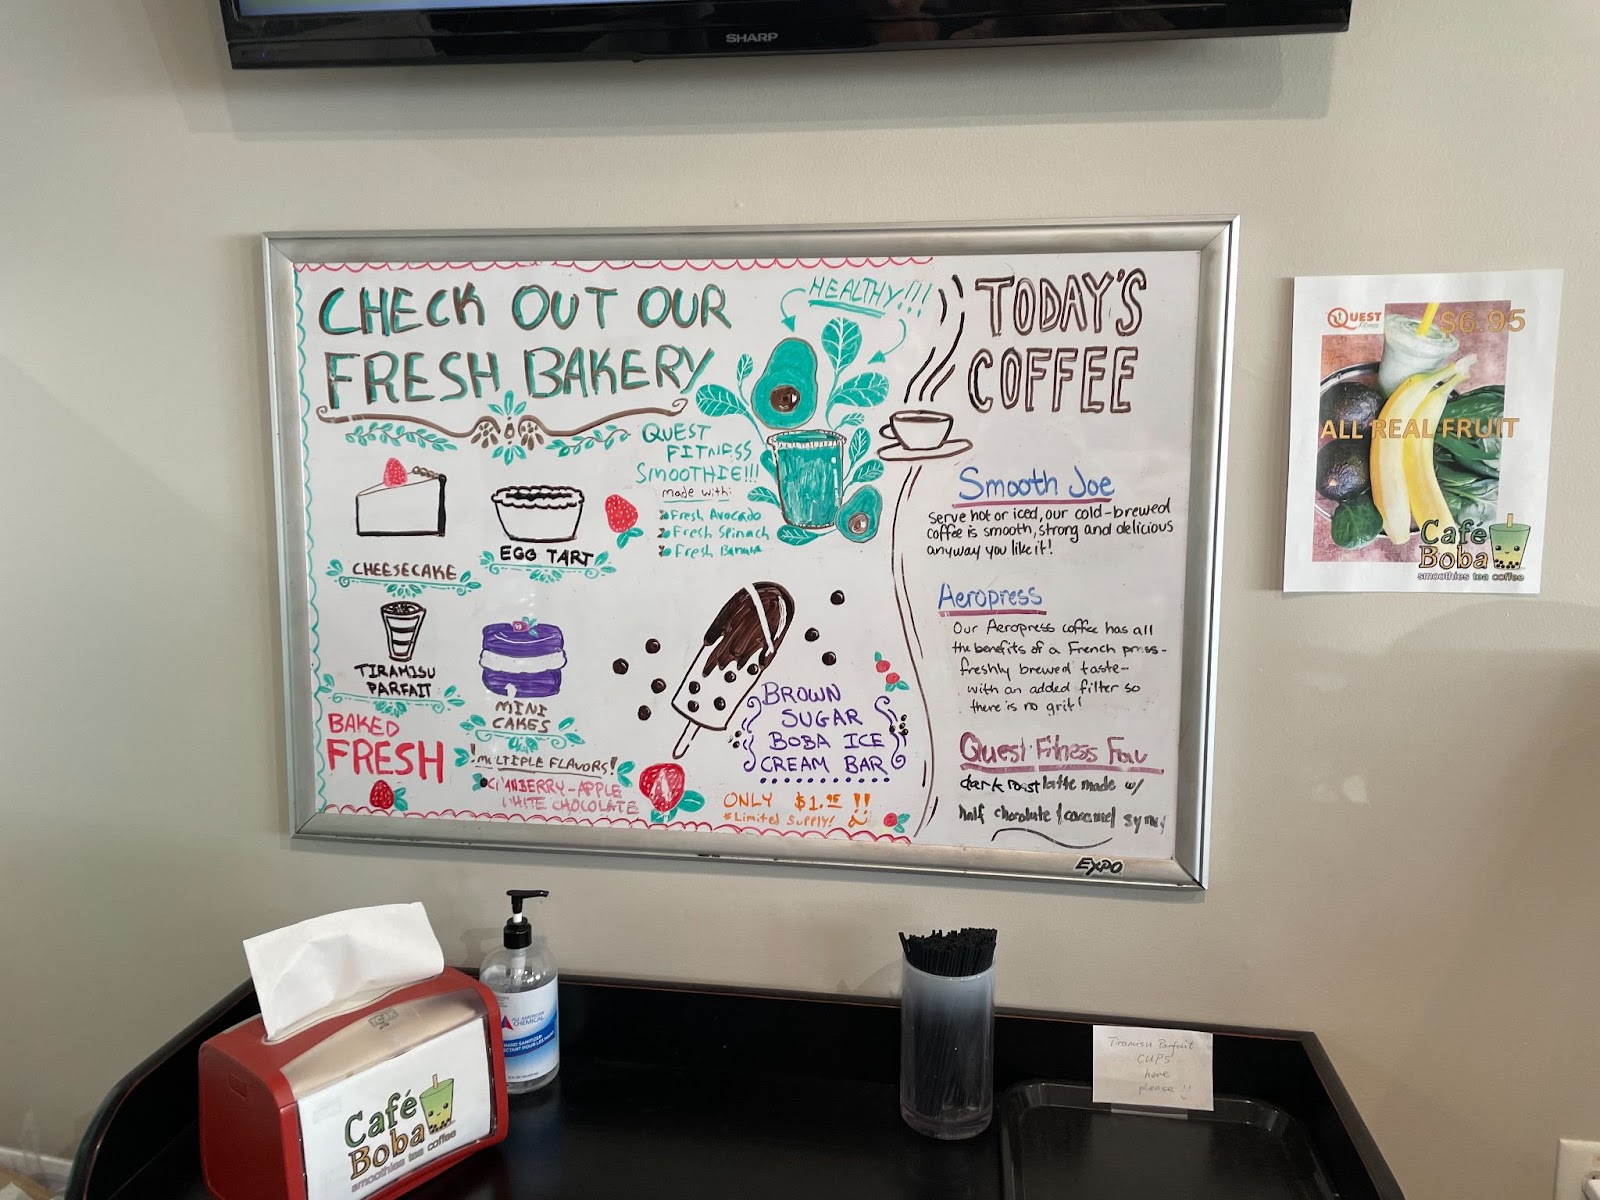 SHARP
CHECK OUT OUR
FRESH BAKERY
HEALTHY!!!
QUEST
FITNESS
SMOOTHIE!!!
made with:
Fresh Avocado
Fresh Spinach
Fresh Banana
CHEESECAKE
EGG TART
TIRAMISU
PARFAIT
MINI
CAKES
BAKED
FRESH
!MULTIPLE FLAVORS!
CRANBERRY-APPLE
WHITE CHOCOLATE
BROWN
SUGAR
BOBA ICE
CREAM BAR
ONLY $1.95 !!
*Limited Supply!
TODAY'S
COFFEE
Smooth Joe
Serve hot or iced, our cold-brewed
coffee is smooth, strong and delicious
anyway you like it!
Aeropress
Our Aeropress coffee has all
the benefits of a French press-
freshly brewed taste-
with an added filter so
there is no grit!
Quest Fitness Fav
dark roast latte made w/
half chocolate / caramel syrup
EXPO
QUEST
Fitness
$6.95
ALL REAL FRUIT
Café
Boba
smoothies tea coffee
ALL AMERICAN
CHEMICAL
HAND SANITIZER
Tork
Café
Boba
smoothies tea coffee
Tiramisu Parfait
CUPS
here
please !!